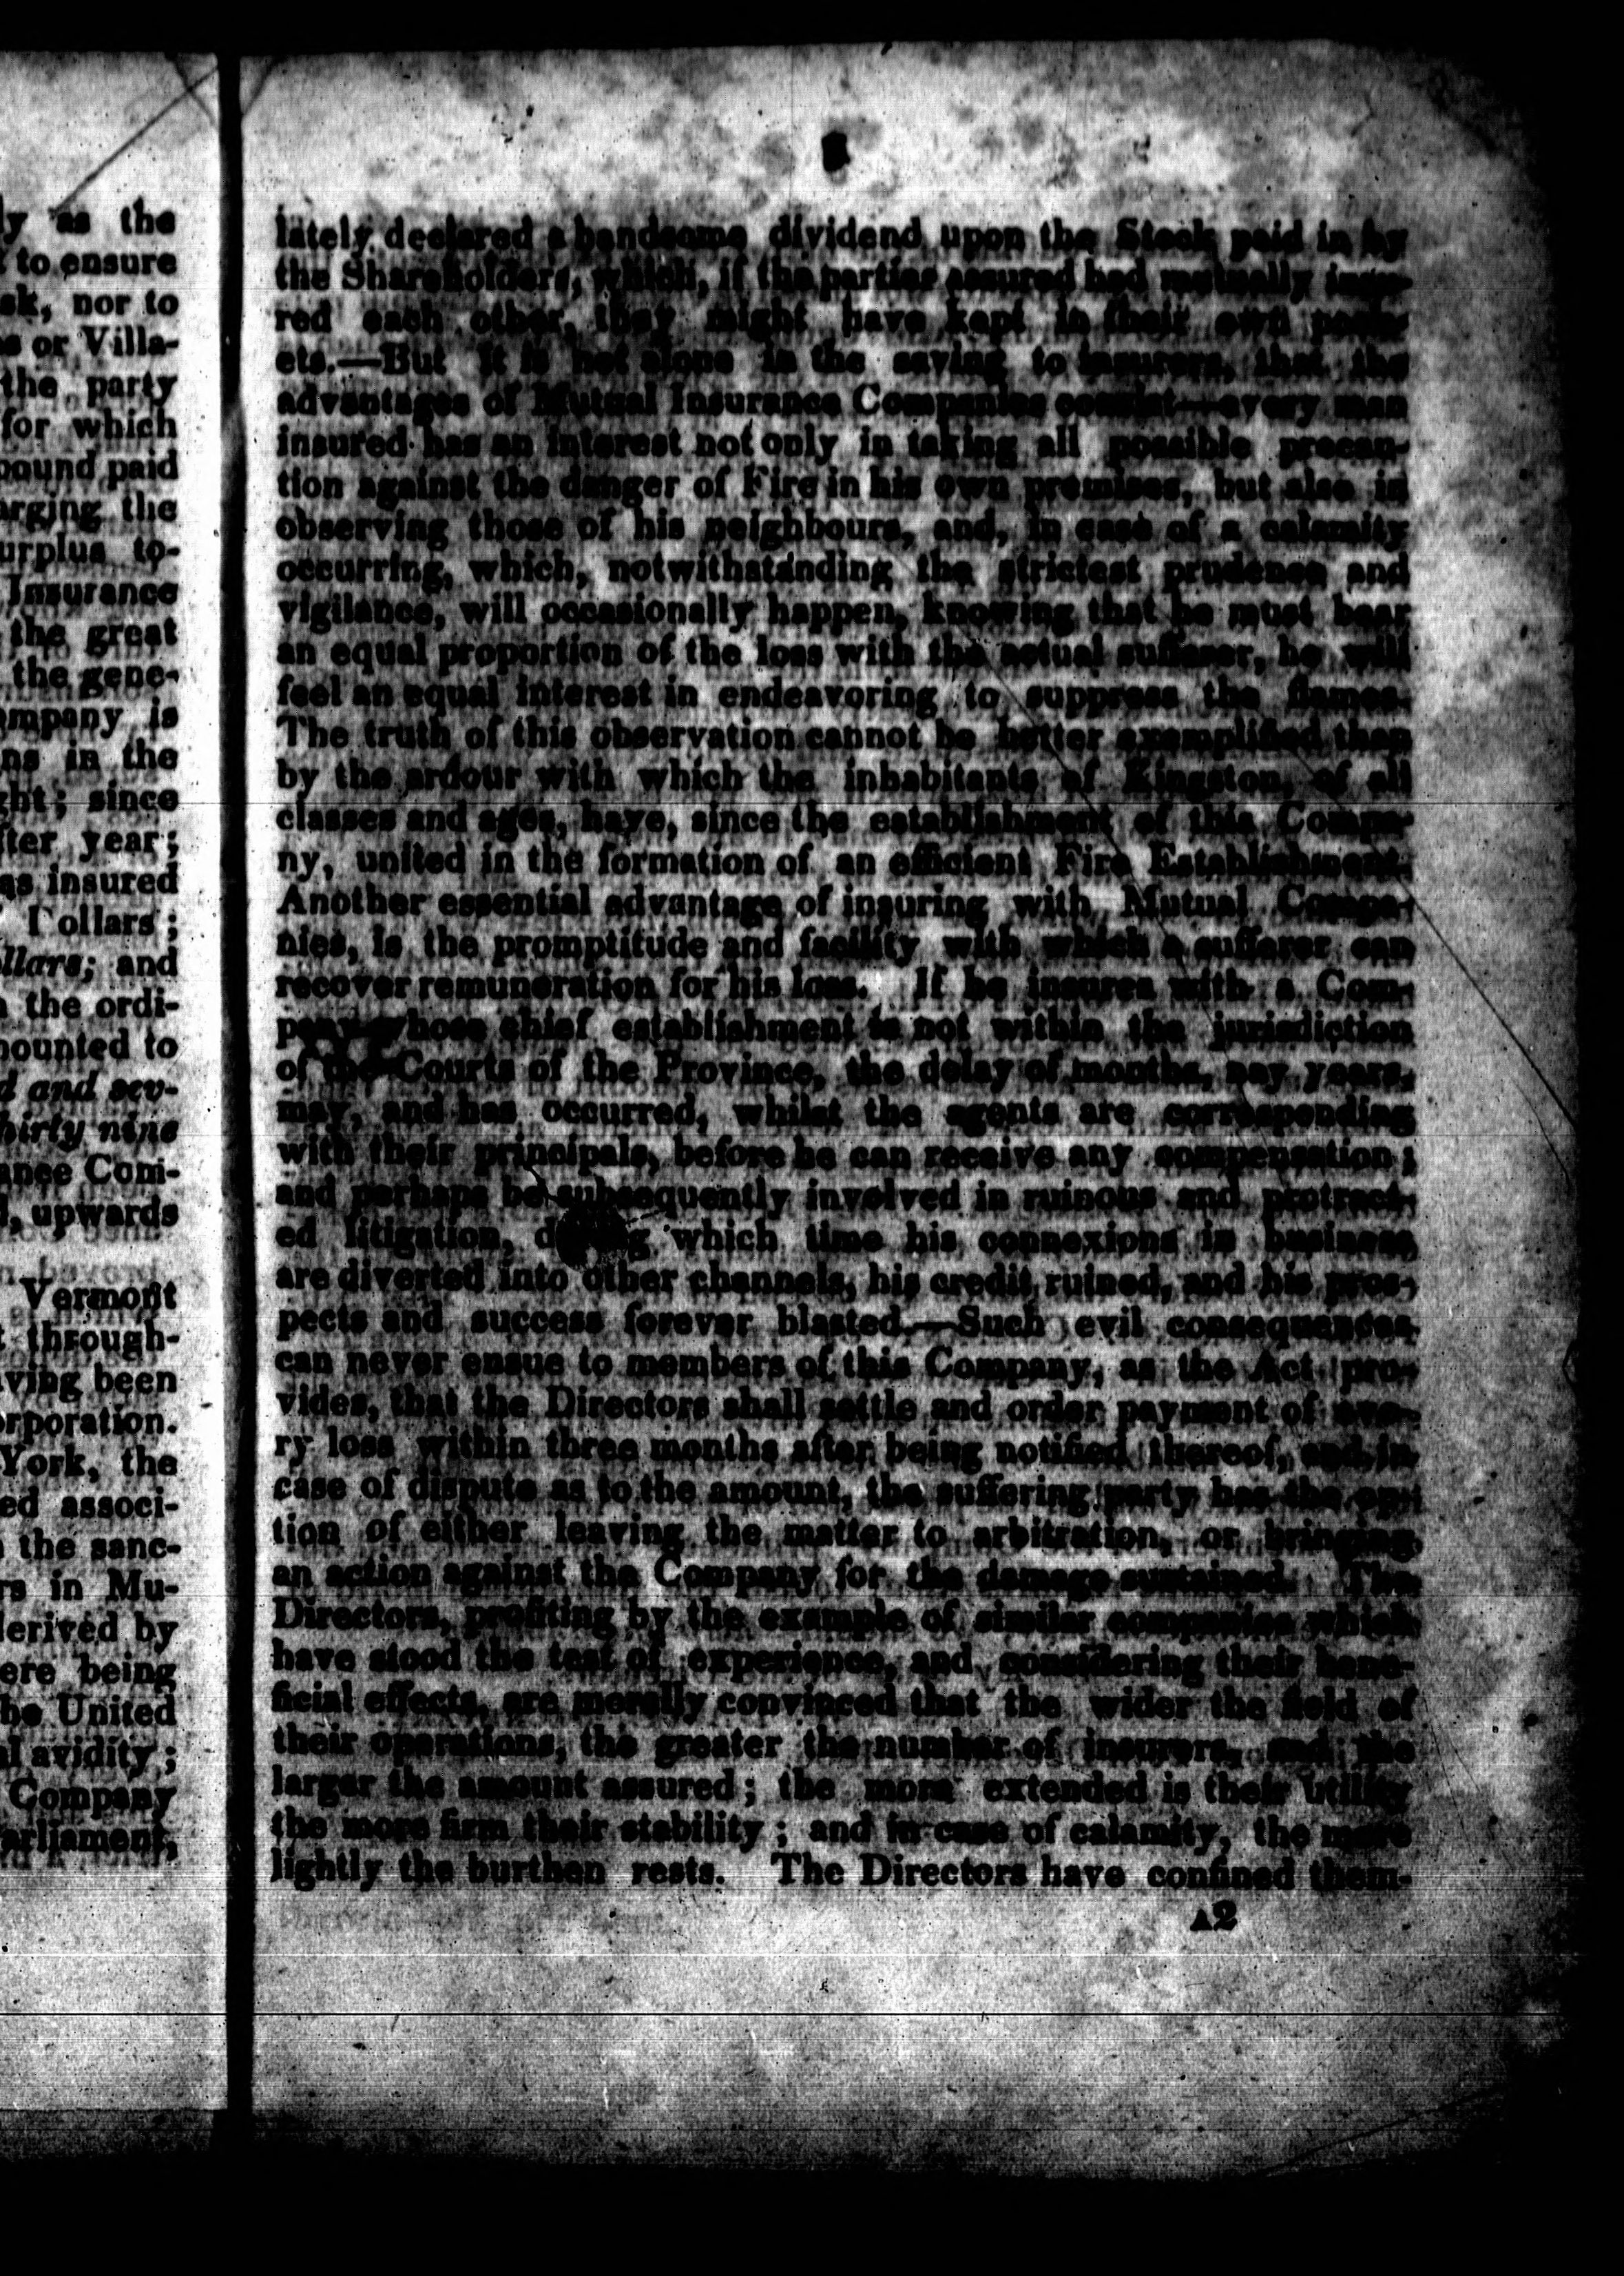 ly as the
to ensure
sk, nor to
s or Villa-
the party
for which
pound paid
arging the
urplus to-
Insurance
the great
the gene-
ompany is
ns in the
ght; since
fter year;
as insured
Dollars;
ollars; and
the ordi-
mounted to
d and sev-
hirty nine
ance Com-
upwards
Vermont
through-
aving been
orporation.
York, the
ed associ-
the sanc-
rs in Mu-
derived by
ere being
the United
al avidity;
Company
Parliament,
lately declared a handsome dividend upon the Stock paid in by
the Shareholders, which, if the parties assured had mutually insu-
red each other, they might have kept in their own pock-
ets.—But it is not alone in the saving to insurers, that the
advantages of Mutual Insurance Companies consist—every man
insured has an interest not only in taking all possible precau-
tion against the danger of Fire in his own premises, but also in
observing those of his neighbours, and, in case of a calamity
occurring, which, notwithstanding the strictest prudence and
vigilance, will occasionally happen, knowing that he must bear
an equal proportion of the loss with the actual sufferer, he will
feel an equal interest in endeavoring to suppress the flames.
The truth of this observation cannot be better exemplified then
by the ardour with which the inhabitants of Kingston, of all
classes and ages, have, since the establishment of this Compa-
ny, united in the formation of an efficient Fire Establishment.
Another essential advantage of insuring with Mutual Compa-
nies, is the promptitude and facility with which a sufferer can
recover remuneration for his loss. If he insures with a Com-
pany whose chief establishment is not within the jurisdiction
of the Courts of the Province, the delay of months, nay years,
may, and has occurred, whilst the agents are corresponding
with their principals, before he can receive any compensation;
and perhaps be subsequently involved in ruinous and protract-
ed litigation, during which time his connexions in business
are diverted into other channels, his credit ruined, and his pros-
pects and success forever blasted.—Such evil consequences
can never ensue to members of this Company, as the Act pro-
vides, that the Directors shall settle and order payment of eve-
ry loss within three months after being notified thereof, and in
case of dispute as to the amount, the suffering party has the op-
tion of either leaving the matter to arbitration, or bringing
an action against the Company for the damage sustained. The
Directors, profiting by the example of similar companies which
have stood the test of experience, and considering their bene-
ficial effects, are morally convinced that the wider the field of
their operations, the greater the number of insurers, and the
larger the amount assured; the more extended is their utility
the more firm their stability; and in case of calamity, the more
lightly the burthen rests. The Directors have confined them-
A2